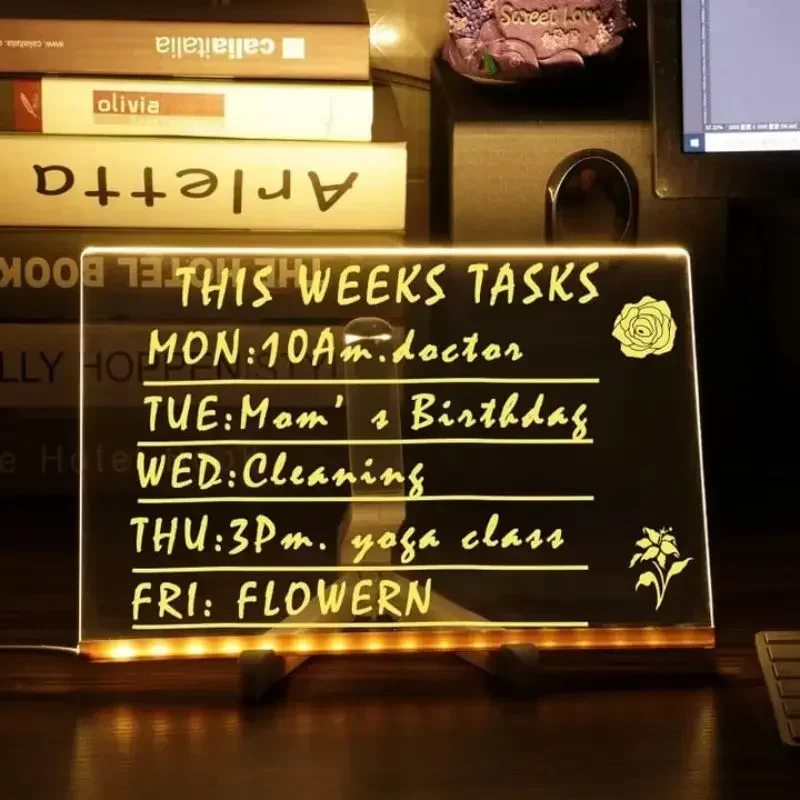 www.caliaitalia
caliaitalia
olivia
Arletta
Sweet Love
THE HOTEL BOOK
LLY HOPPEN STY
e Hotel
THIS WEEKS TASKS
MON:10Am.doctor
TUE:Mom's Birthday
WED:Cleaning
THU:3Pm. yoga class
FRI: FLOWERN